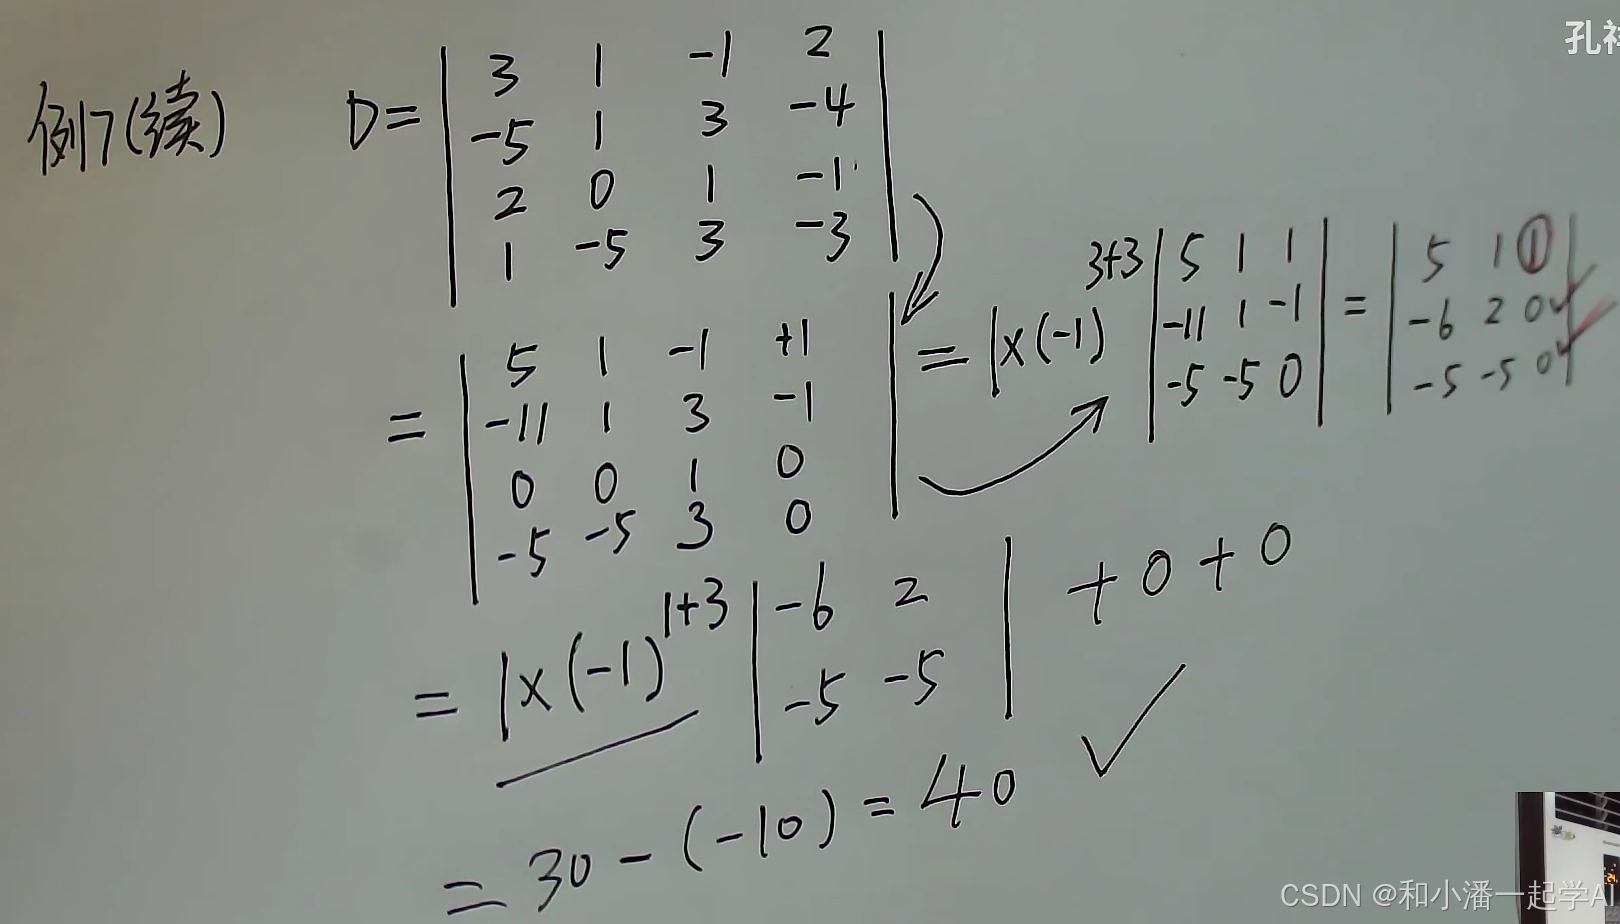 孔祥
例7(续) D= | 3 1 -1 2 |
| -5 1 3 -4 |
| 2 0 1 -1 |
| 1 -5 3 -3 |
= | 5 1 -1 +1 |
| -11 1 3 -1 |
| 0 0 1 0 |
| -5 -5 3 0 |
= 1×(-1)^3+3 | 5 1 1 | = | 5 1 1 |
| -11 1 -1 | | -6 2 0 |
| -5 -5 0 | | -5 -5 0 |
= 1×(-1)^1+3 | -6 2 | +0+0
| -5 -5 |
= 30-(-10)=40 ✓
CSDN @和小潘一起学AI